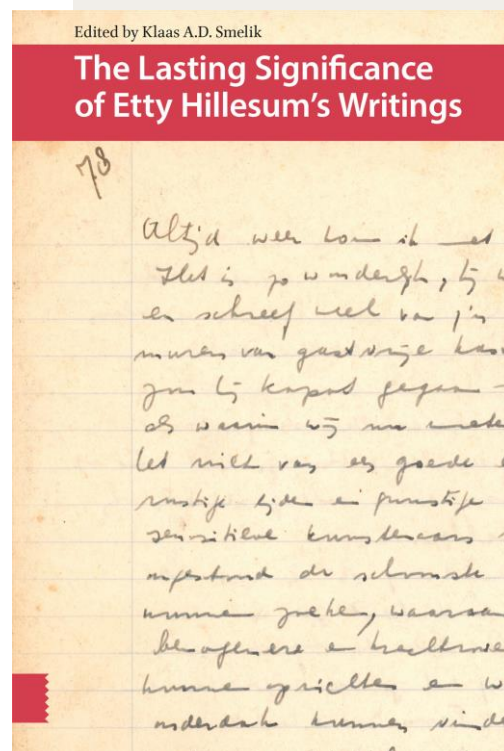 Edited by Klaas A.D. Smelik
The Lasting Significance
of Etty Hillesum's Writings
78
Altijd weer kom ik met
Het is zo wonderlijk, hij w
en schreef veel van z'n
muren van gastvrije kas
zou hij kapot gegaan
als waarin wij nu
niet van een goede
rustige tijden en gunstige
sensitieve kunstenaars
ongestoord de schoonste
kunnen zoeken, waaraan
bewogenere en
kunnen oprichten en w
onderdak kunnen vinde